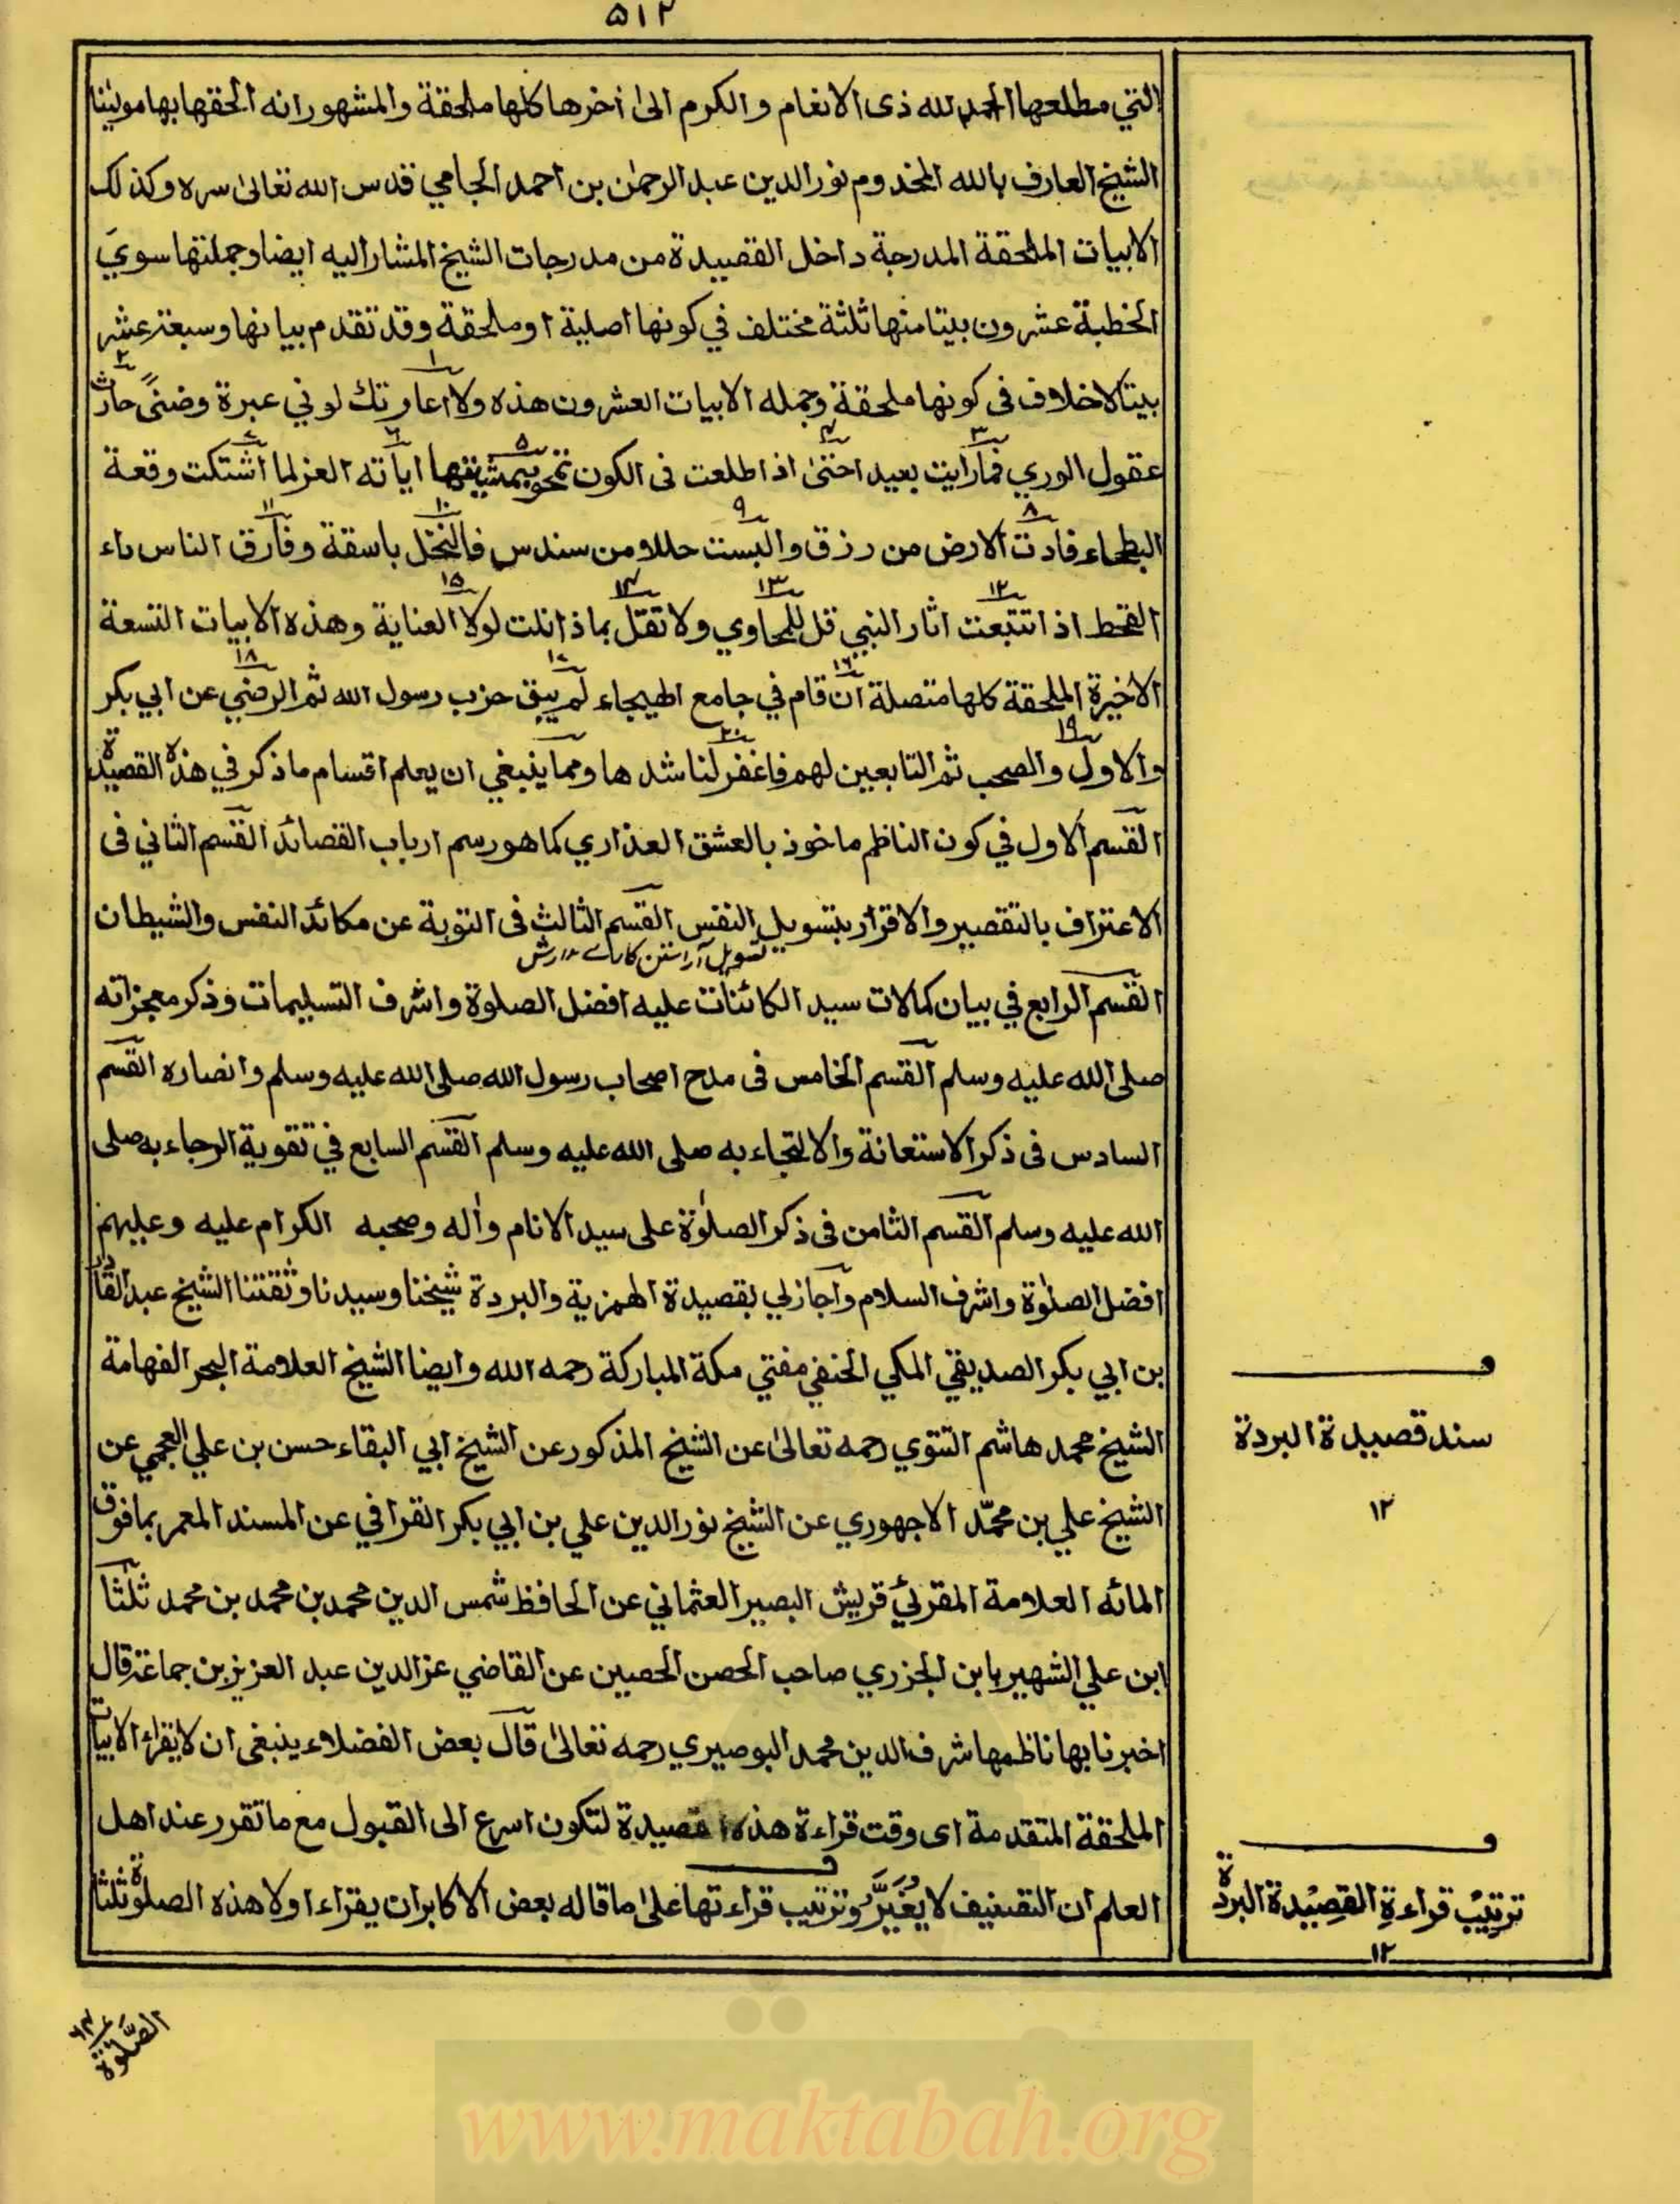 ٥١٢
التي مطلعها الحمد لله ذى الانعام والكرم الى اخرها كلها ملحقة والمشهور انه الحقها بها مولينا
الشيخ العارف بالله المخدوم نور الدين عبد الرحمٰن بن احمد الجامي قدس الله تعالى سره وكذلك
الابيات الملحقة المدرجة داخل القصيدة من مدرجات الشيخ المشار اليه ايضا وجملتها سوي
الخطبة عشرون بيتا منها ثلثة مختلف في كونها اصلية او ملحقة وقد تقدم بيانها وسبعة عشر
بيتا لاخلاف في كونها ملحقة وجمله الابيات العشرون هذه ولا اعارتك لوني عبرة وضنىً حارت
عقول الوري فما رايت بعيد احتى اذا اطلعت فى الكون تمحو بمشيتها اياته العز لما اشتكت وقعة
البطحاء فادت الارض من رزق والبست حللا من سندس فالنخل باسقة وفارق الناس داء
القحط اذا تتبعت اثار النبي قل للمحاوي ولا تقل بماذا نلت لولا العناية وهذه الابيات التسعة
الاخيرة الملحقة كلها متصلة ان قام في جامع الهيجاء لم يبق حزب رسول الله ثم الرضي عن ابي بكر
والاول والصحب ثم التابعين لهم فاغفر لناشدها ومما ينبغي ان يعلم اقسام ما ذكر في هذه القصيدة
القسم الاول في كون الناظم ماخوذ بالعشق العذاري كما هو رسم ارباب القصائد القسم الثاني فى
الاعتراف بالتقصير والاقرار بتسويل النفس القسم الثالث فى التوبة عن مكائد النفس والشيطان
تسويل آراستن
القسم الرابع في بيان كمالات سيد الكائنات عليه افضل الصلوة واشرف التسليمات وذكر معجزاته
صلى الله عليه وسلم القسم الخامس فى مدح اصحاب رسول الله صلى الله عليه وسلم وانصاره القسم
السادس فى ذكر الاستعانة والالتجاء به صلى الله عليه وسلم القسم السابع في تقوية الرجاء به صلى
الله عليه وسلم القسم الثامن فى ذكر الصلوٰة على سيد الانام واٰله وصحبه الكرام عليه وعليهم
افضل الصلوٰة واشرف السلام واجاز لي بقصيدة الهمزية والبردة شيخنا وسيدنا وثقتنا الشيخ عبد القادر
بن ابي بكر الصديقي المكي الحنفي مفتي مكة المباركة رحمه الله وايضا الشيخ العلامة البحر الفهامة
الشيخ محمد هاشم التتوي رحمه تعالىٰ عن الشيخ المذكور عن الشيخ ابي البقاء حسن بن علي العجمي عن
الشيخ علي بن محمّد الاجهوري عن الشيخ نور الدين علي بن ابي بكر القرافي عن المسند المعمر بما فوق
المائه العلامة المقرئي قريش البصير العثماني عن الحافظ شمس الدين محمد بن محمد بن محمد ثلثا
ابن علي الشهير بابن الجزري صاحب الحصن الحصين عن القاضي عز الدين عبد العزيز بن جماعة قال
اخبرنا بها ناظمها شرف الدين محمد البوصيري رحمه تعالىٰ قال بعض الفضلاء ينبغى ان لا يقراء الابيات
الملحقة المتقدمة اى وقت قراءة هذه القصيدة لتكون اسرع الى القبول مع ما تقرر عند اهل
العلم ان التصنيف لا يُغَيَّرُ وترتيب قراءتها على ما قاله بعض الاكابر ان يقراء اولا هذه الصلوة ثلثا
سند قصيدة البردة
١٢
ترتيب قراءة القصيدة البردة
١٢
الصَّلٰوة
www.maktabah.org